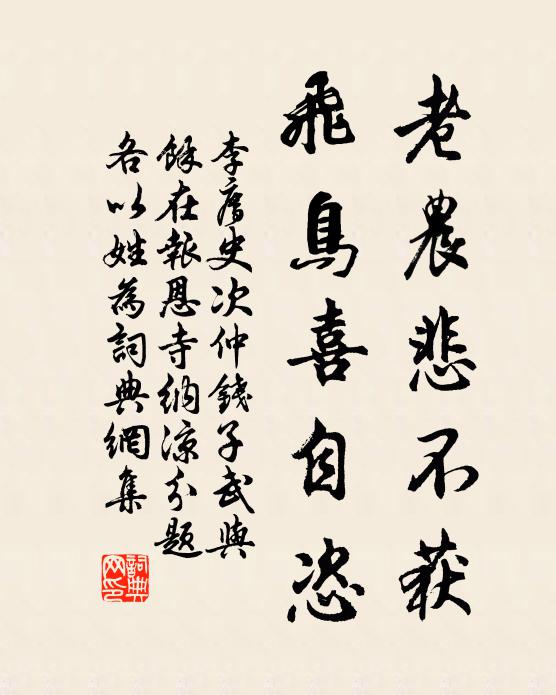 老農悲不获
飛鳥喜自恣
李詹史次仲錢子武與
餘在報恩寺納涼分題
各以姓為詞典網集
詞典
网印